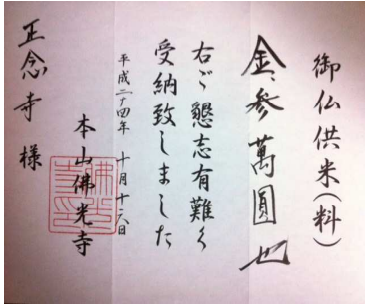 御仏供米(料)
金参萬圓也
右ご懇志有難く
受納致しました
平成二十四年 十月十六日
本山佛光寺
正念寺様